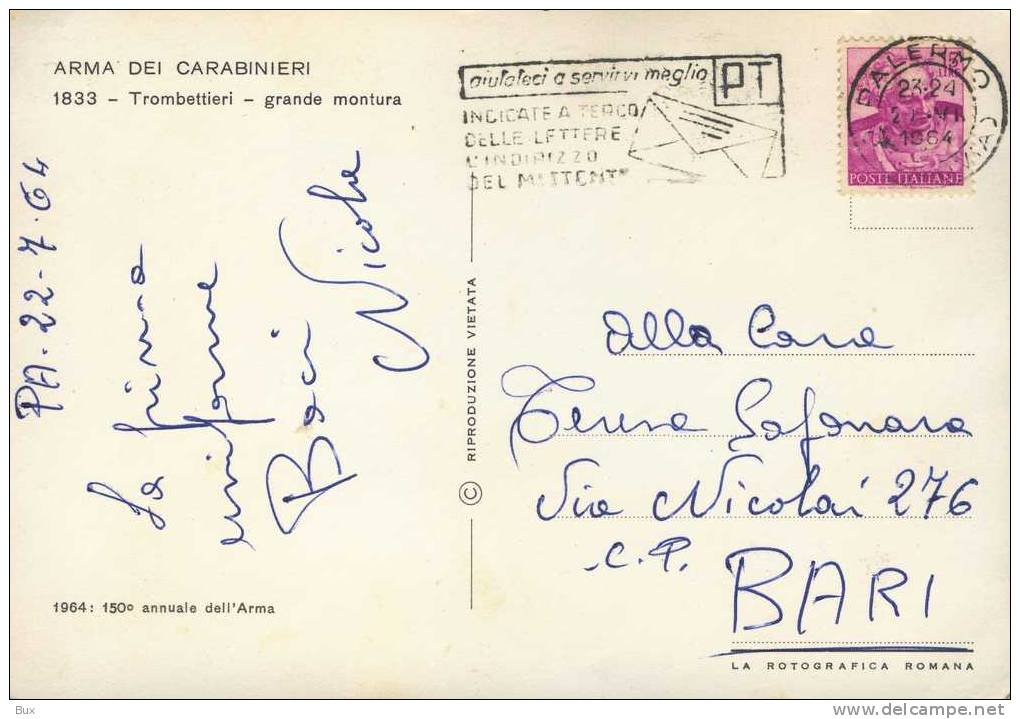 ARMA DEI CARABINIERI
1833 - Trombettieri - grande montura
PA. 22-7-64
la prima
uniforme
Baci
Nicola
1964: 150º annuale dell'Arma
© RIPRODUZIONE VIETATA
aiutateci a servirvi meglio
PT
INDICATE A TERGO
DELLE LETTERE
L'INDIRIZZO
DEL MITTENTE
PALERMO
23-24
1964
LIRE
POSTE ITALIANE
Alla Cara
Teresa Lafonara
Via Nicolai 276
C.P.
BARI
LA ROTOGRAFICA ROMANA
Bux
delcampe.net